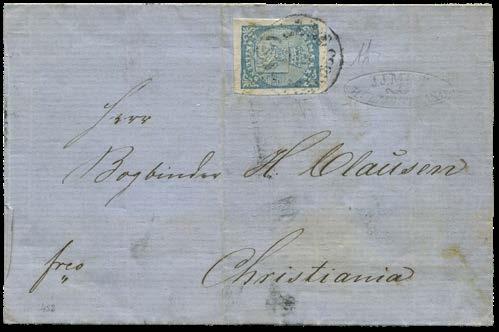 Herr
Bogbinder H. Clausen
frco
Christiania
458